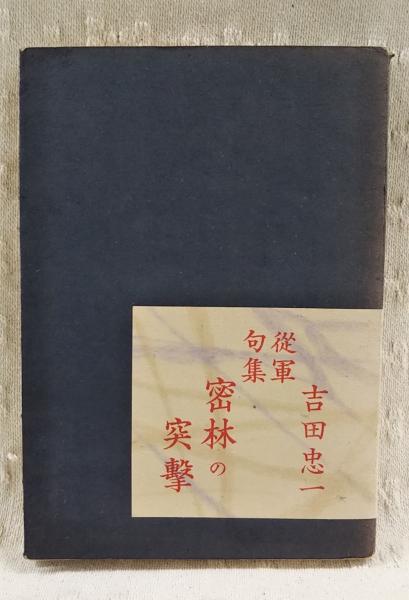 吉田忠一
從軍
句集
密林の
突擊